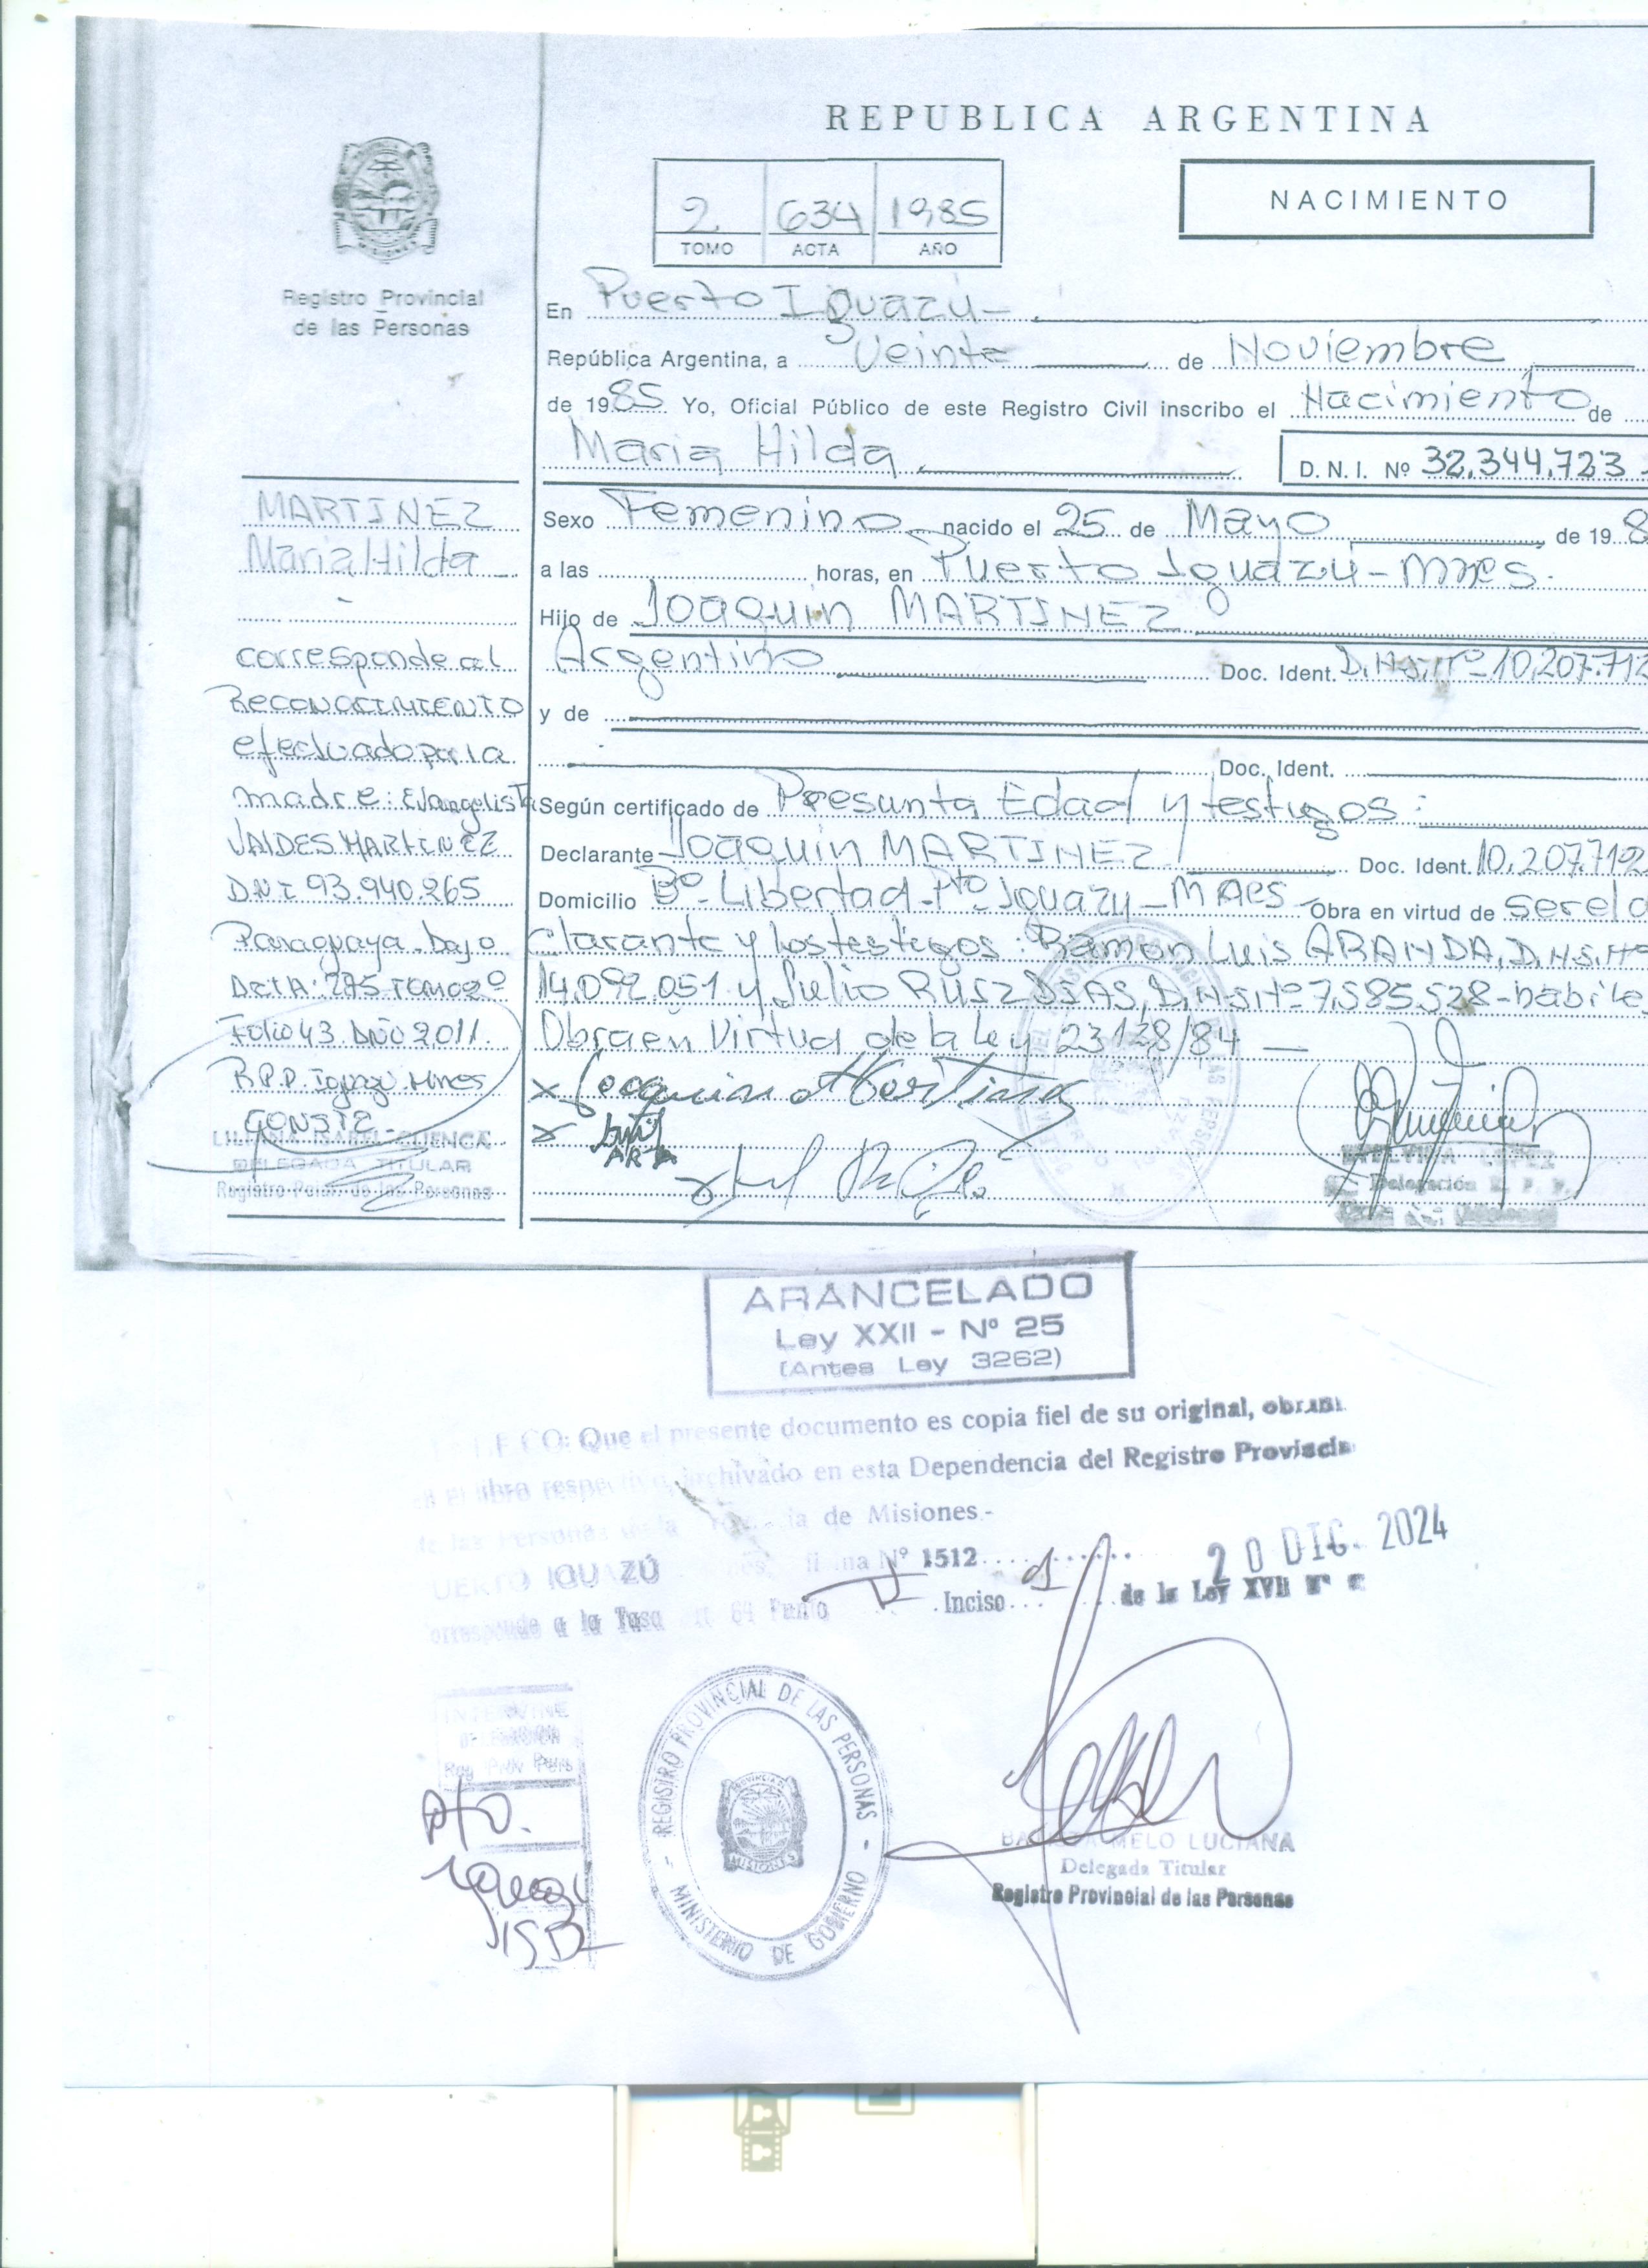 REPUBLICA ARGENTINA
NACIMIENTO
2 634 1985
TOMO ACTA AÑO
Registro Provincial
de las Personas
En Puerto Iguazú
República Argentina, a Veinte de Noviembre
de 1985 Yo, Oficial Público de este Registro Civil inscribo el Nacimiento de
Maria Hilda
D.N.I. Nº 32.344.723
MARTINEZ
Maria Hilda
corresponde al
RECONOCIMIENTO
efectuado por la
madre: Evangelista
VALDES MARTINEZ
DNI 93.940.265
Paraguaya bajo
Acta: 275 Tomo 2º
Folio 43 Año 2011.
R.P.P. Iguazú Mnes
CONSTE
LILIANA ISABEL CUENCA
DELEGADA TITULAR
Registro Pcial. de las Personas
Sexo Femenino nacido el 25 de Mayo de 198
a las horas, en Puerto Iguazú - Mnes.
Hijo de Joaquin MARTINEZ
Argentino Doc. Ident. D.N.I. Nº 10.207.712
y de
Doc. Ident.
Según certificado de Presunta Edad y testigos:
Declarante Joaquin MARTINEZ Doc. Ident. 10.207.712
Domicilio Bº Libertad - Pto Iguazu - Mnes Obra en virtud de ser el de
clarante y los testigos: Ramon Luis ARANDA, D.N.I. Nº
14.092.051 y Julio RUIZ DIAS, D.N.I. Nº 7.585.528 - habiles
Obra en Virtud de la Ley 23128/84
Delegación R. P. P.
ARANCELADO
Ley XXII - Nº 25
(Antes Ley 3262)
CO: Que el presente documento es copia fiel de su original,
en el libro respectivo, archivado en esta Dependencia del Registro Provincia
de las Personas de la de Misiones.-
UERTO IGUAZÚ Nº 1512 20 DIC. 2024
orresponde a la Tasa 64 Punto Inciso d de la Ley XVII Nº
INTERVINE
DELEGACION
Reg Prov Pers
Pto.
Iguazú
REGISTRO PROVINCIAL DE LAS PERSONAS
MINISTERIO DE GOBIERNO
PROVINCIA DE
MISIONES
MELO LUCIANA
Delegada Titular
Registro Provincial de las Personas